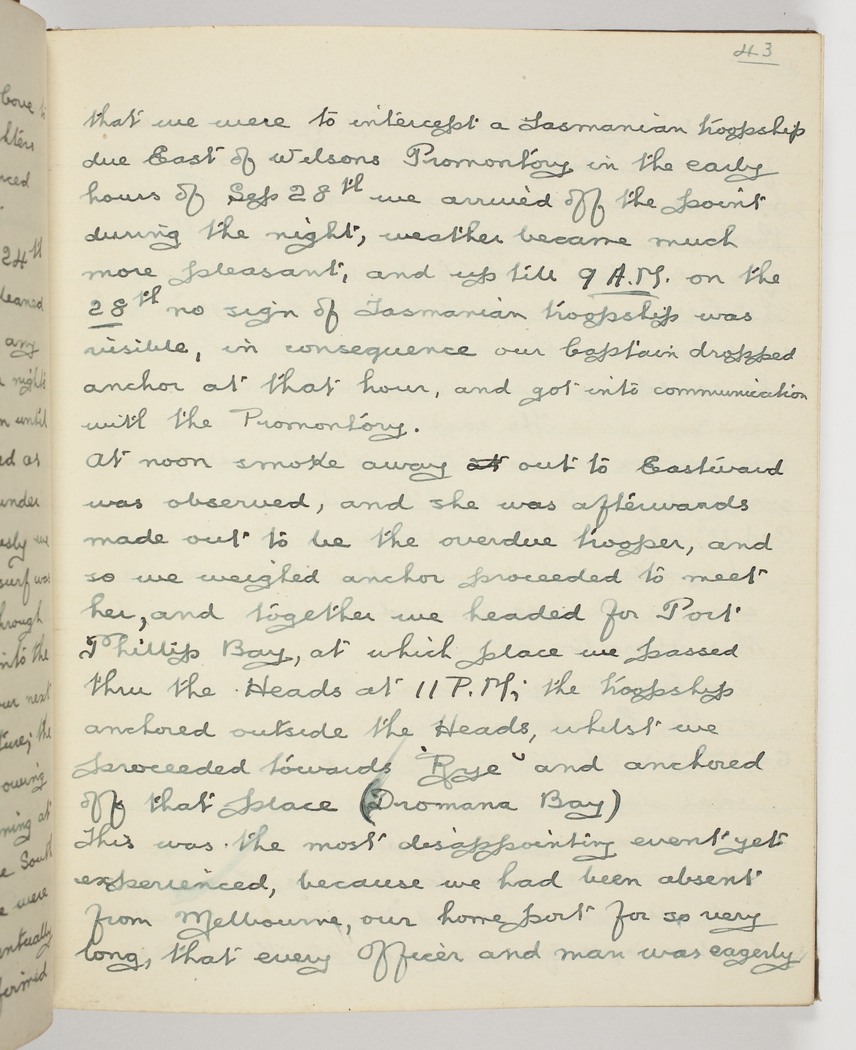 43
that we were to intercept a Tasmanian troopship
due East of Wilsons Promontory in the early
hours of Sep 28th we arrived off the point
during the night, weather became much
more pleasant, and up till 9 A.M. on the
28th no sign of Tasmanian troopship was
visible, in consequence our Captain dropped
anchor at that hour, and got into communication
with the Promontory.
At noon smoke away at out to Eastward
was observed, and she was afterwards
made out to be the overdue trooper, and
so we weighed anchor proceeded to meet
her, and together we headed for Port
Phillip Bay, at which place we passed
thru the Heads at 11 P.M; the troopship
anchored outside the Heads, whilst we
proceeded towards "Rye" and anchored
off that place (Dromana Bay)
This was the most disappointing event yet
experienced, because we had been absent
from Melbourne, our home port for so very
long, that every Officer and man was eagerly
24th
any
night
until
ed as
under
surf was
through
into the
our next
the
owing
ning at
South
were